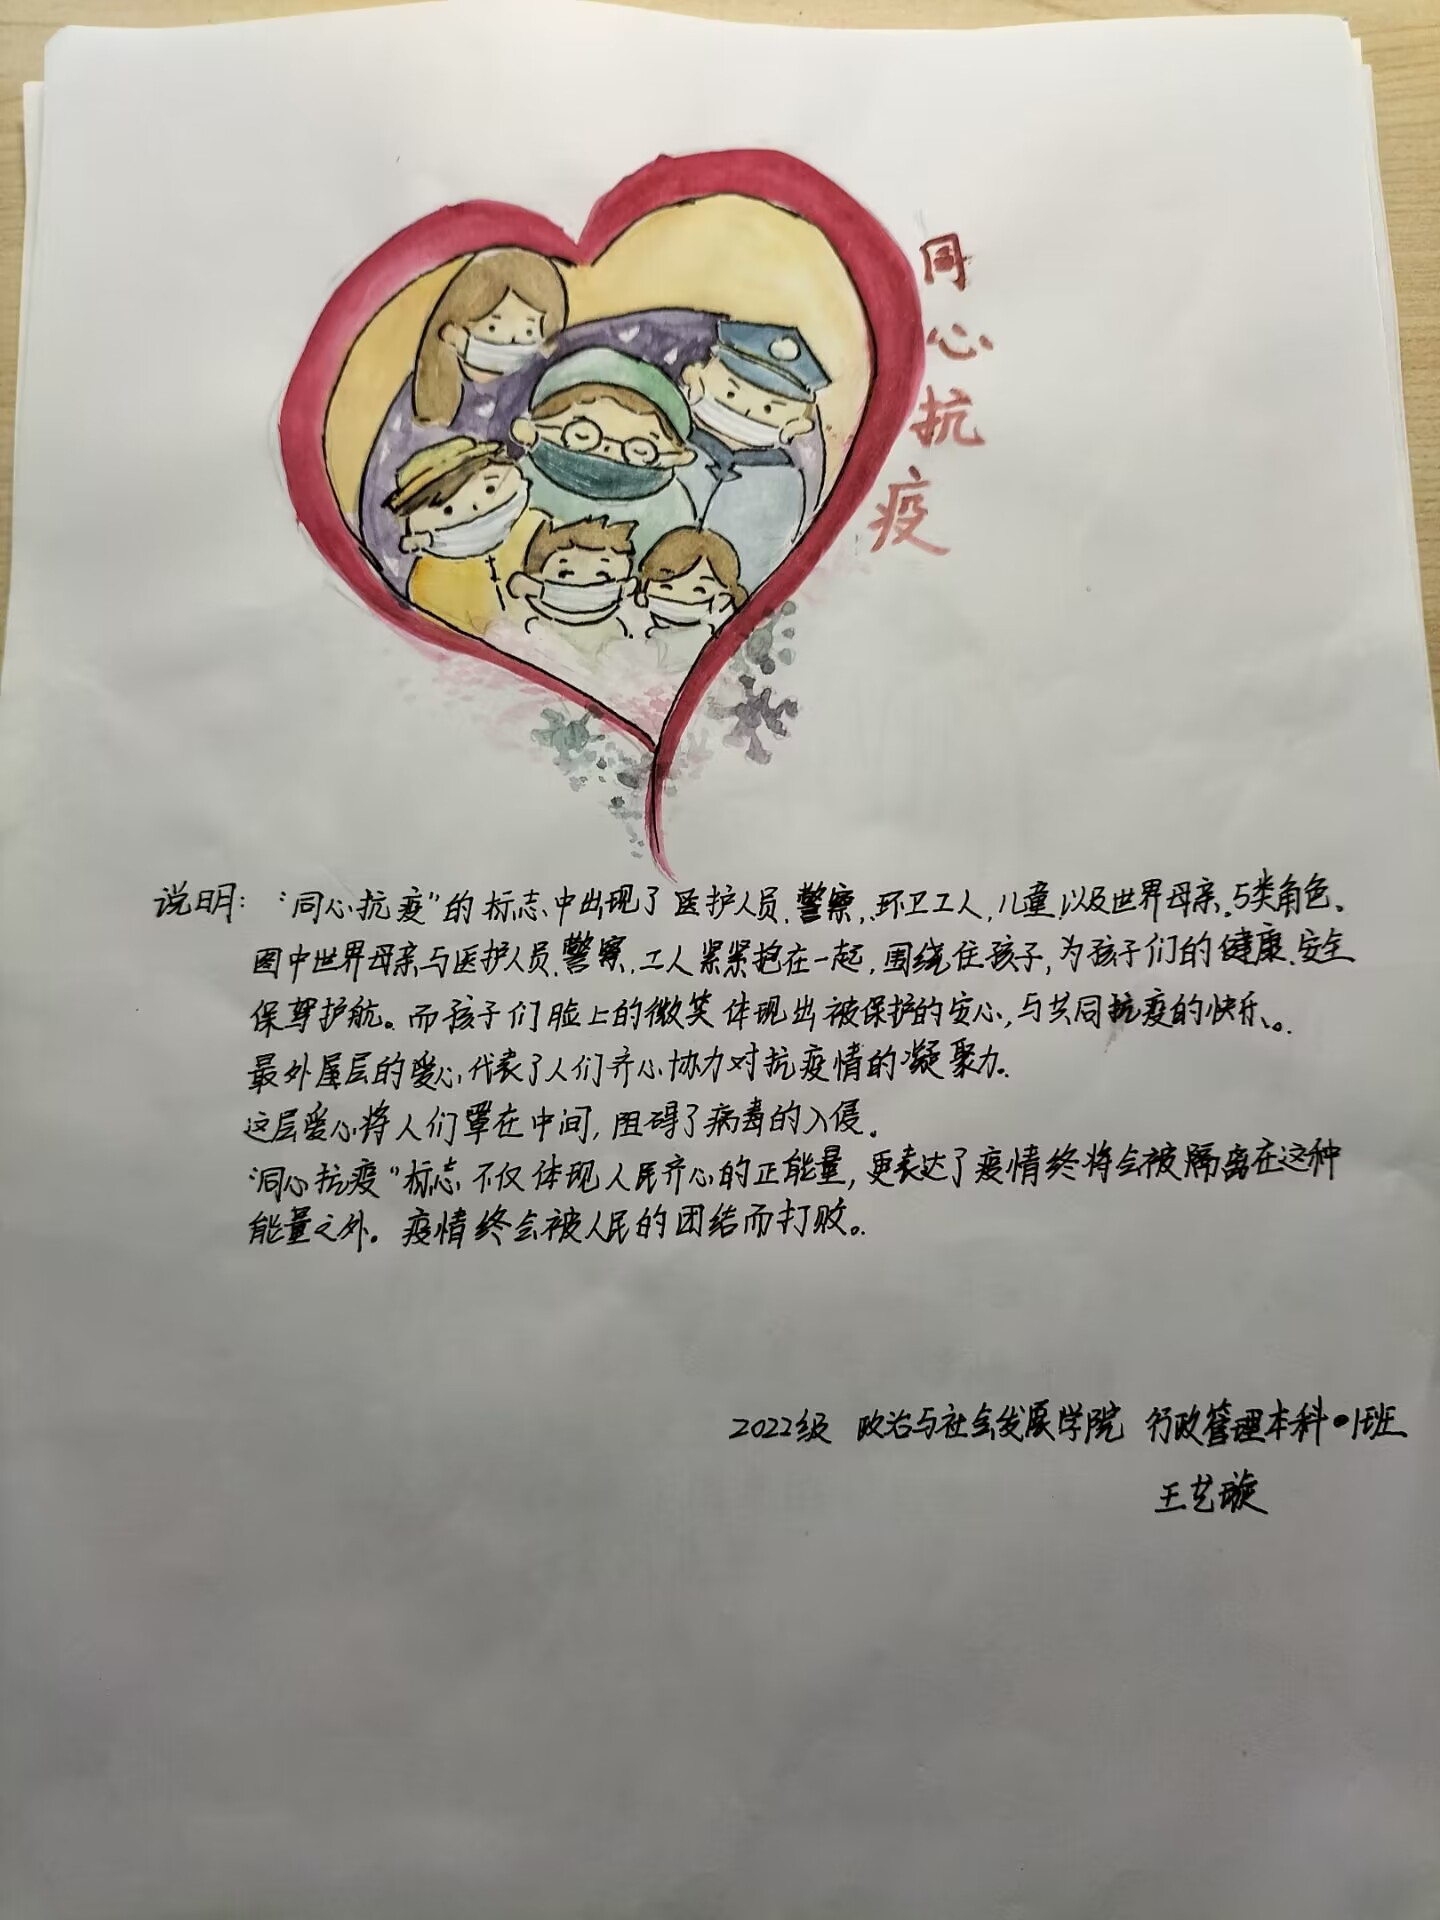 同心抗疫
说明："同心抗疫"的标志中出现了医护人员、警察、环卫工人，儿童以及世界母亲。5类角色。
图中世界母亲与医护人员、警察、工人紧紧抱在一起，围绕住孩子，为孩子们的健康、安全
保驾护航。而孩子们脸上的微笑体现出被保护的安心，与共同抗疫的快乐。
最外层的爱心，代表了人们齐心协力对抗疫情的凝聚力。
这层爱心将人们罩在中间，阻碍了病毒的入侵。
"同心抗疫"标志不仅体现人民齐心的正能量，更表达了疫情终将会被隔离在这种
能量之外。疫情终会被人民的团结而打败。
2022级 政治与社会发展学院 行政管理本科·1班
王艺璇